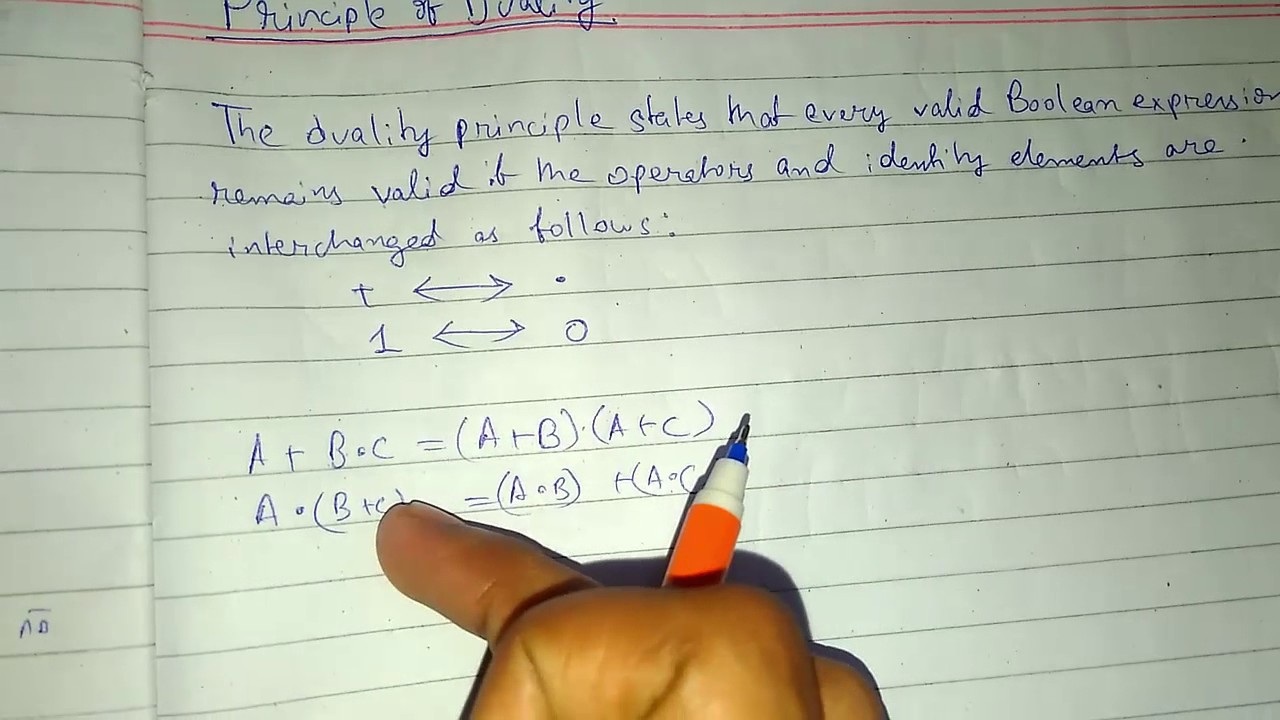 Principle of Duality.
The duality principle states that every valid Boolean expression
remains valid if the operators and identity elements are.
interchanged as follows:
+ ⟷ •
1 ⟷ 0
A + B•C = (A+B)•(A+C)
A•(B+C) = (A•B) +(A•C
AB